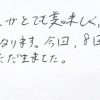 がとても美味しく
なります。今回,8回
ただきました。